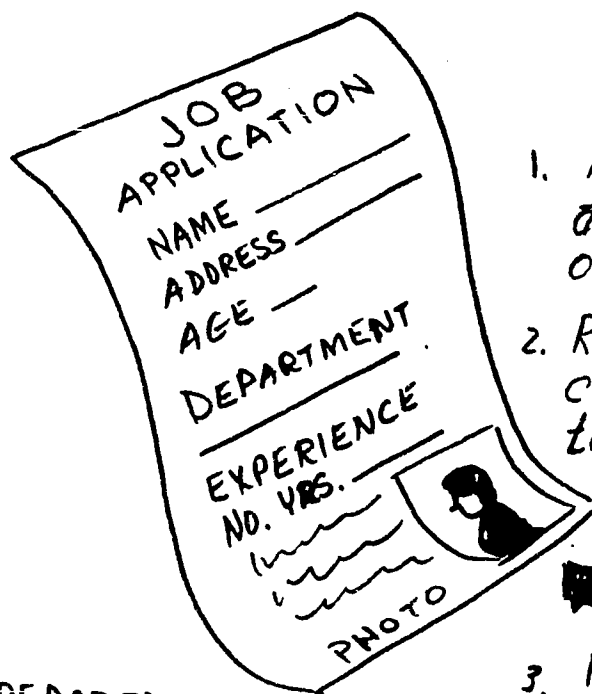 JOB
APPLICATION
NAME
ADDRESS
AGE
DEPARTMENT
EXPERIENCE
NO. YRS.
PHOTO
1.
2. R
3.